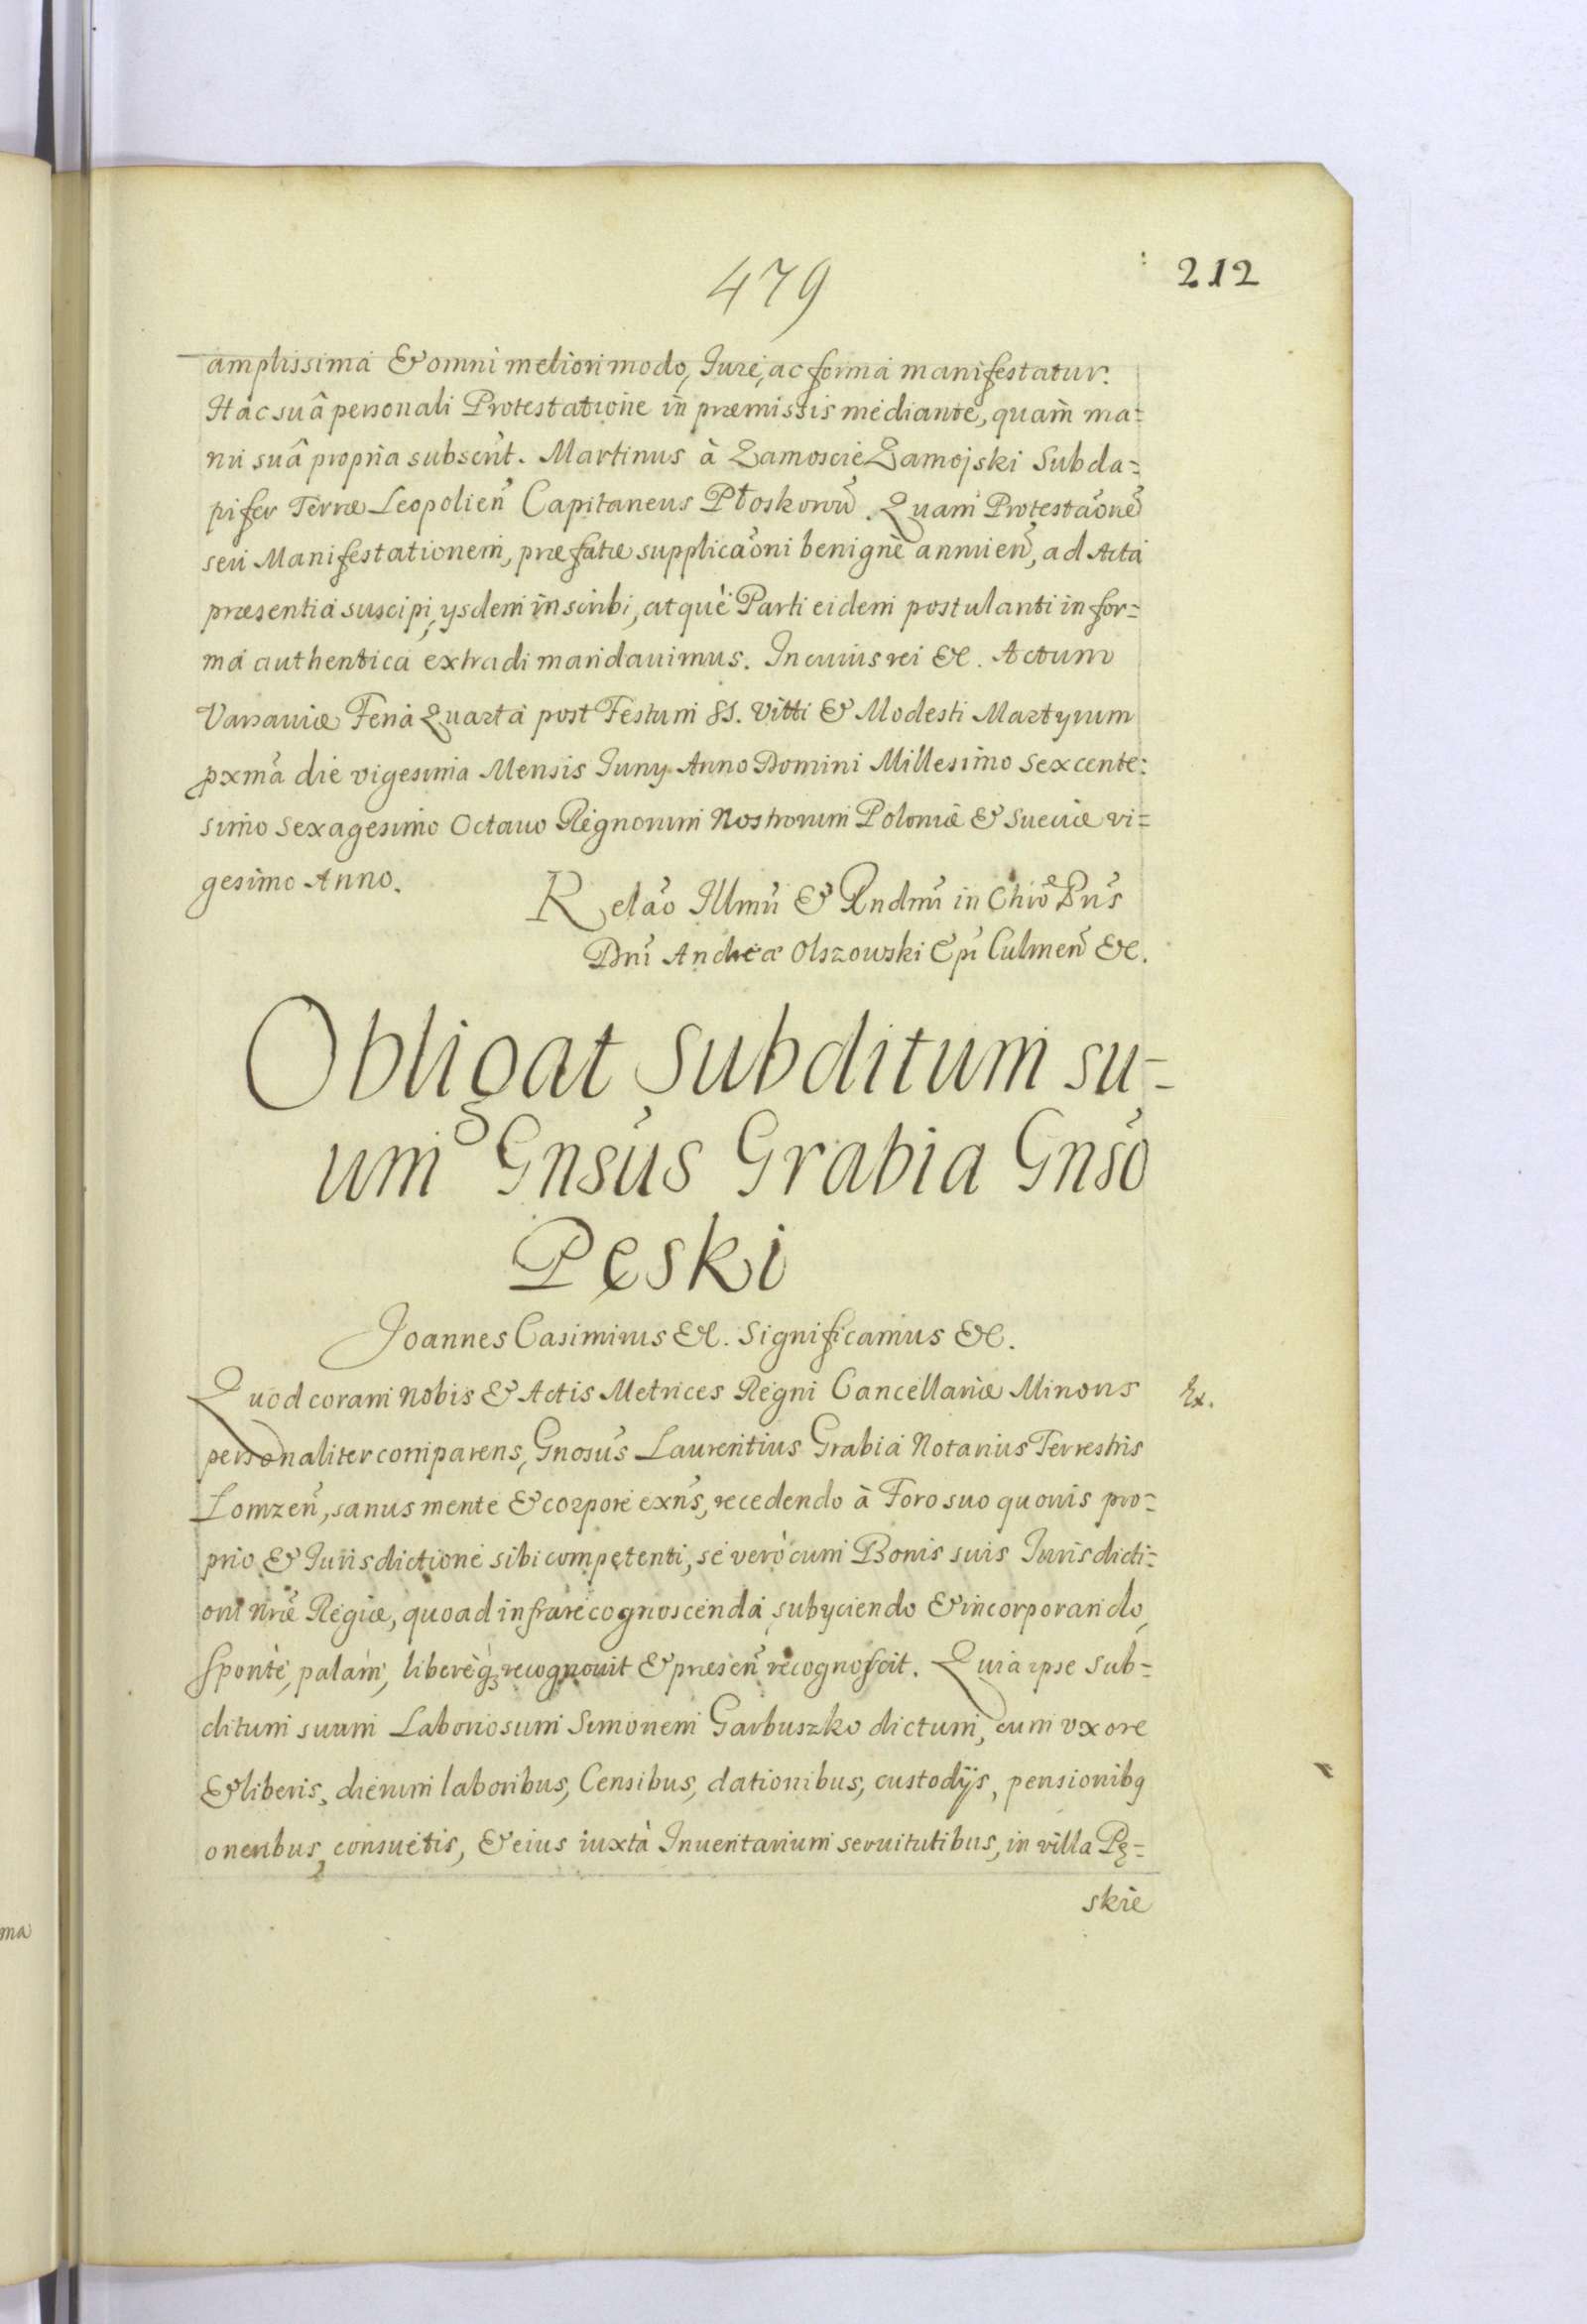 479
212
amplissima & omni meliori modo, Jure, ac forma manifestatur.
Hâc suâ personali Protestatione in præmissis mediante, quam ma=
nu suâ propria subscrit. Martinus à Zamoscie Zamojski Subda=
pifer Terræ Leopolień Capitaneus Płoskorow̃. Quam Protestaõnẽ
seu Manifestationem, præfatæ supplicaõni benignè annuień, ad Acta
præsentia suscipi, ysdem inscribi, atquè Parti eidem postulanti in for=
ma authentica extradi mandauimus. In cuius rei &c. Actum
Varsauiæ Feria Quarta post Festum SS. Vitti & Modesti Martyrum
pxmã die vigesima Mensis Juny Anno Domini Millesimo Sexcente:
simo Sexagesimo Octauo Regnorum Nostrorum Poloniæ & Sueciæ vi=
gesimo Anno.
Relaõ Illmĩ & Rndmĩ in Chrõ Pris
Dnĩ Andreæ Olszowski Epĩ Culmeñ &c.
Obligat subditum su=
um Gnsũs Grabia Gnsõ
Pęski
Joannes Casimirus &c. Significamus &c.
Quod coram Nobis & Actis Metrices Regni Cancellariæ Minoris
Ex.
personaliter comparens, Gnosũs Laurentius Grabia Notarius Terrestris
Lomzeñ, sanus mente & corpore exñs, recedendo à Foro suo quouis pro=
prio & Jurisdictione sibi competenti, se verò cum Bonis suis Jurisdicti=
oni Nræ̃ Regiæ, quoad infra recognoscenda subyciendo & incorporando,
sponte, palam, libereq; recognouit & præseñ recognoscit. Quia ipse Sub=
ditum suum Laboriosum Simonem Garbuszko dictum, cum vxore
& liberis, dierum laboribus, Censibus, dationibus, custodÿs, pensionibq
oneribus consuetis, & eius iuxtà Inuentarium seruitutibus, in villa Pę=
skie